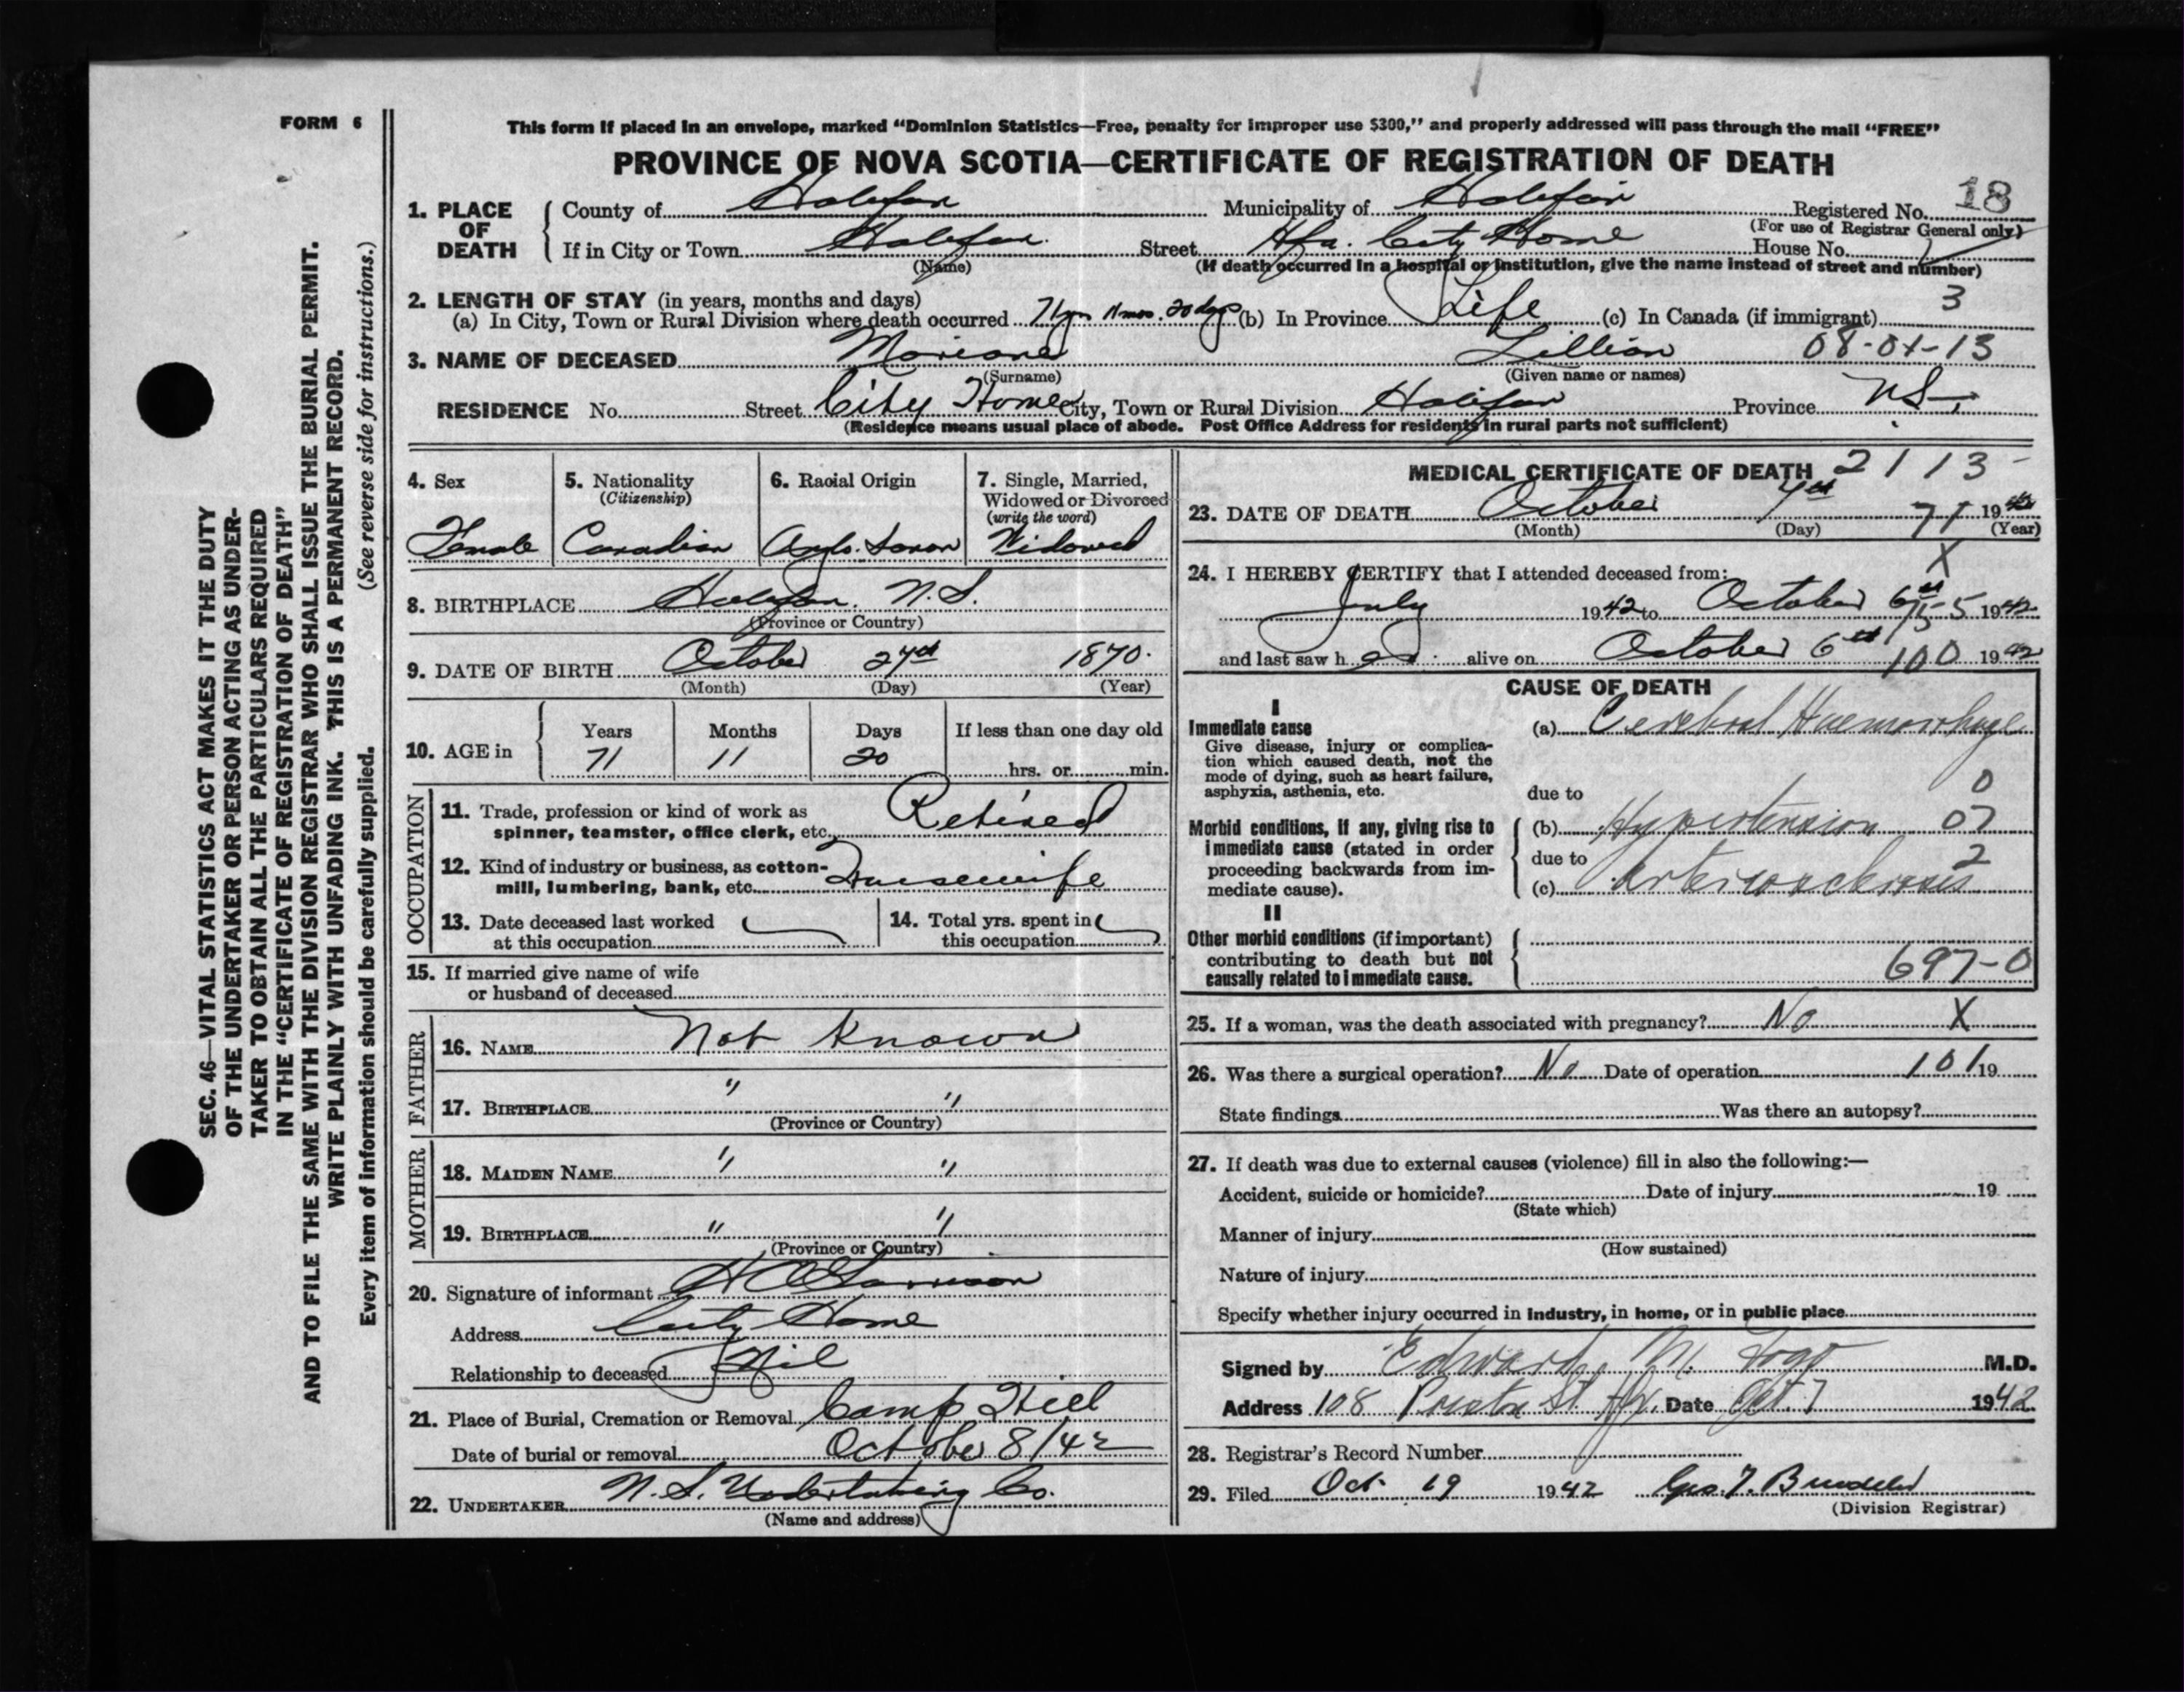 FORM 6
This form if placed in an envelope, marked “Dominion Statistics—Free, penalty for improper use $300,” and properly addressed will pass through the mail “FREE”
PROVINCE OF NOVA SCOTIA—CERTIFICATE OF REGISTRATION OF DEATH
SEC. 46—VITAL STATISTICS ACT MAKES IT THE DUTY
OF THE UNDERTAKER OR PERSON ACTING AS UNDER-
TAKER TO OBTAIN ALL THE PARTICULARS REQUIRED
IN THE “CERTIFICATE OF REGISTRATION OF DEATH”
AND TO FILE THE SAME WITH THE DIVISION REGISTRAR WHO SHALL ISSUE THE BURIAL PERMIT.
WRITE PLAINLY WITH UNFADING INK. THIS IS A PERMANENT RECORD.
Every item of information should be carefully supplied. (See reverse side for instructions.)
1. PLACE OF DEATH County of Halifax Municipality of Halifax Registered No. 18
(For use of Registrar General only)
If in City or Town Halifax Street Hfx. City Home House No.
(Name) (If death occurred in a hospital or institution, give the name instead of street and number)
2. LENGTH OF STAY (in years, months and days) 3
(a) In City, Town or Rural Division where death occurred 71 yrs 11 mos. 20 days (b) In Province Life (c) In Canada (if immigrant)
3. NAME OF DECEASED Lillian 08-01-13
(Surname) (Given name or names)
RESIDENCE No. Street City Home City, Town or Rural Division Halifax Province N.S.
(Residence means usual place of abode. Post Office Address for residents in rural parts not sufficient)
4. Sex 5. Nationality (Citizenship) 6. Racial Origin 7. Single, Married, Widowed or Divorced (write the word)
Female Canadian Anglo. Saxon Widowed
8. BIRTHPLACE Halifax, N.S.
(Province or Country)
9. DATE OF BIRTH October 27th 1870.
(Month) (Day) (Year)
10. AGE in Years Months Days If less than one day old
71 11 20 hrs. or min.
OCCUPATION
11. Trade, profession or kind of work as
spinner, teamster, office clerk, etc. Retired
12. Kind of industry or business, as cotton-
mill, lumbering, bank, etc. Housewife
13. Date deceased last worked
at this occupation
14. Total yrs. spent in
this occupation
15. If married give name of wife
or husband of deceased
FATHER
16. NAME Not Known
17. BIRTHPLACE " "
(Province or Country)
MOTHER
18. MAIDEN NAME " "
19. BIRTHPLACE " "
(Province or Country)
20. Signature of informant
Address City Home
Relationship to deceased Nil
21. Place of Burial, Cremation or Removal Camp Hill
Date of burial or removal October 8/42
22. UNDERTAKER N.S. Undertaking Co.
(Name and address)
MEDICAL CERTIFICATE OF DEATH 2113-
23. DATE OF DEATH October 7th 71 1942
(Month) (Day) (Year)
X
24. I HEREBY CERTIFY that I attended deceased from:
July 1942 to October 6th 1942
and last saw h er alive on October 6th 100 1942
CAUSE OF DEATH
I
Immediate cause (a) Cerebral Haemorrhage
Give disease, injury or complica-
tion which caused death, not the
mode of dying, such as heart failure,
asphyxia, asthenia, etc. due to 0
Morbid conditions, if any, giving rise to (b) Hypertension 07
immediate cause (stated in order due to 2
proceeding backwards from im-
mediate cause). (c) Arteriosclerosis
II
Other morbid conditions (if important)
contributing to death but not
causally related to immediate cause. 697-0
25. If a woman, was the death associated with pregnancy? No X
26. Was there a surgical operation? No Date of operation 101 19
State findings Was there an autopsy?
27. If death was due to external causes (violence) fill in also the following:—
Accident, suicide or homicide? Date of injury 19
(State which)
Manner of injury
(How sustained)
Nature of injury
Specify whether injury occurred in industry, in home, or in public place
Signed by Edward M. Fogo M.D.
Address 108 Preston St. Hfx. Date Oct. 7 1942
28. Registrar's Record Number
29. Filed Oct 19 1942 Geo. F.
(Division Registrar)